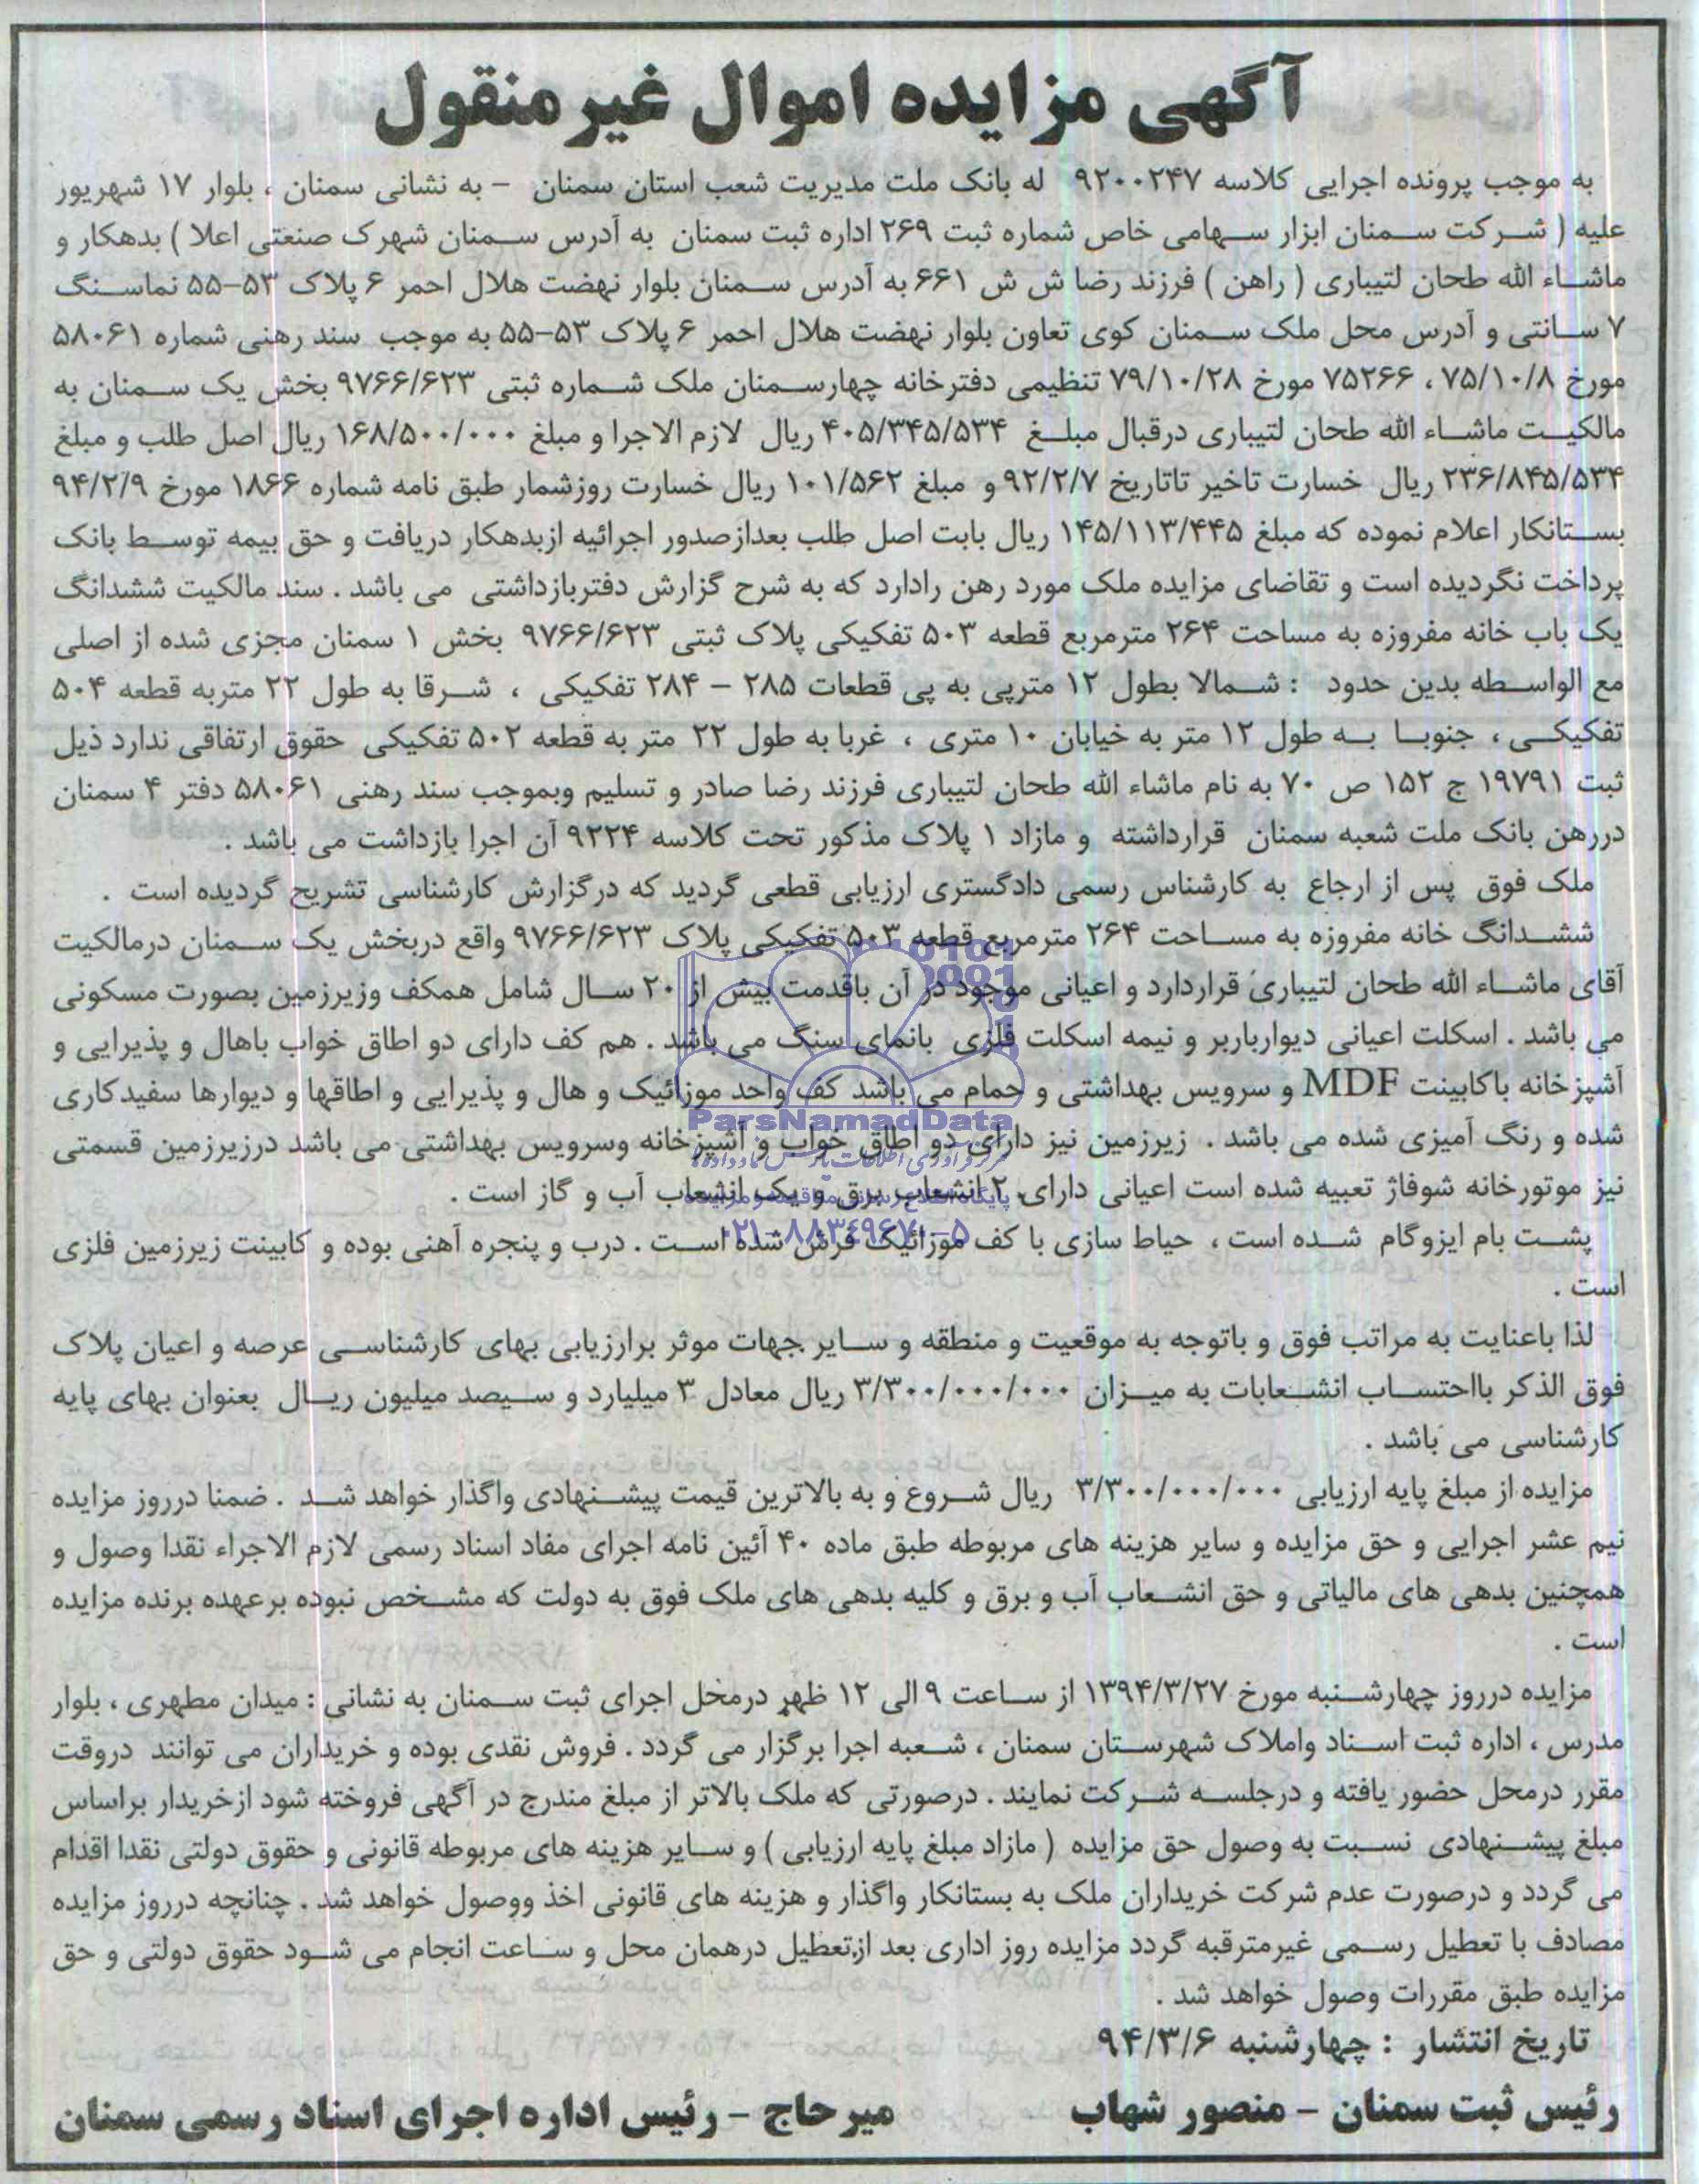 آگهی مزایده اموال غیر منقول
به موجب پرونده اجرایی کلاسه ۹۲۰۰۲۴۷ له بانک ملت مدیریت شعب استان سمنان - به نشانی سمنان ، بلوار ۱۷ شهریور
علیه ( شرکت سمنان ابزار سهامی خاص شماره ثبت ۲۶۹ اداره ثبت سمنان به آدرس سمنان شهرک صنعتی اعلا ) بدهکار و
ماشاء الله طحان لتیباری ( راهن ) فرزند رضا ش ش ۶۶۱ به آدرس سمنان بلوار نهضت هلال احمر ۶ پلاک ۵۳-۵۵ نماسنگ
۷ سانتی و آدرس محل ملک سمنان کوی تعاون بلوار نهضت هلال احمر ۶ پلاک ۵۳-۵۵ به موجب سند رهنی شماره ۵۸۰۶۱
مورخ ۷۵/۱۰/۸ ، ۷۵۲۶۶ مورخ ۷۹/۱۰/۲۸ تنظیمی دفترخانه چهارسمنان ملک شماره ثبتی ۹۷۶۶/۶۲۳ بخش یک سمنان به
مالکیت ماشاء الله طحان لتیباری درقبال مبلغ ۴۰۵/۳۴۵/۵۳۴ ریال لازم الاجرا و مبلغ ۱۶۸/۵۰۰/۰۰۰ ریال اصل طلب و مبلغ
۲۳۶/۸۴۵/۵۳۴ ریال خسارت تاخیر تاتاریخ ۹۲/۲/۷ و مبلغ ۱۰۱/۵۶۲ ریال خسارت روزشمار طبق نامه شماره ۱۸۶۶ مورخ ۹۴/۲/۹
بستانکار اعلام نموده که مبلغ ۱۴۵/۱۱۳/۴۴۵ ریال بابت اصل طلب بعدازصدور اجرائیه ازبدهکار دریافت و حق بیمه توسط بانک
پرداخت نگردیده است و تقاضای مزایده ملک مورد رهن رادارد که به شرح گزارش دفتربازداشتی می باشد . سند مالکیت ششدانگ
یک باب خانه مفروزه به مساحت ۲۶۴ مترمربع قطعه ۵۰۳ تفکیکی پلاک ثبتی ۹۷۶۶/۶۲۳ بخش ۱ سمنان مجزی شده از اصلی
مع الواسطه بدین حدود : شمالا بطول ۱۲ مترپی به پی قطعات ۲۸۵ - ۲۸۴ تفکیکی ، شرقا به طول ۲۲ متربه قطعه ۵۰۴
تفکیکی ، جنوبا به طول ۱۲ متر به خیابان ۱۰ متری ، غربا به طول ۲۲ متر به قطعه ۵۰۲ تفکیکی حقوق ارتفاقی ندارد ذیل
ثبت ۱۹۷۹۱ ج ۱۵۲ ص ۷۰ به نام ماشاء الله طحان لتیباری فرزند رضا صادر و تسلیم وبموجب سند رهنی ۵۸۰۶۱ دفتر ۴ سمنان
دررهن بانک ملت شعبه سمنان قرارداشته و مازاد ۱ پلاک مذکور تحت کلاسه ۹۲۲۴ آن اجرا بازداشت می باشد .
ملک فوق پس از ارجاع به کارشناس رسمی دادگستری ارزیابی قطعی گردید که درگزارش کارشناسی تشریح گردیده است .
ششدانگ خانه مفروزه به مساحت ۲۶۴ مترمربع قطعه ۵۰۳ تفکیکی پلاک ۹۷۶۶/۶۲۳ واقع دربخش یک سمنان درمالکیت
آقای ماشاء الله طحان لتیباری قراردارد و اعیانی موجود در آن باقدمت بیش از ۲۰ سال شامل همکف وزیرزمین بصورت مسکونی
می باشد . اسکلت اعیانی دیوارباربر و نیمه اسکلت فلزی بانمای سنگ می باشد . هم کف دارای دو اطاق خواب باهال و پذیرایی و
آشپزخانه باکابینت MDF و سرویس بهداشتی و حمام می باشد کف واحد موزائیک و هال و پذیرایی و اطاقها و دیوارها سفیدکاری
ParsNamadData
شده و رنگ آمیزی شده می باشد . زیرزمین نیز دارای دو اطاق خواب و آشپزخانه وسرویس بهداشتی می باشد درزیرزمین قسمتی
نیز موتورخانه شوفاژ تعبیه شده است اعیانی دارای ۲ انشعاب برق و یک انشعاب آب و گاز است .
۰۲۱-۸۸۳۴۹۶۷۰-۵
پشت بام ایزوگام شده است ، حیاط سازی با کف موزائیک فرش شده است . درب و پنجره آهنی بوده و کابینت زیرزمین فلزی
است .
لذا باعنایت به مراتب فوق و باتوجه به موقعیت و منطقه و سایر جهات موثر برارزیابی بهای کارشناسی عرصه و اعیان پلاک
فوق الذکر بااحتساب انشعابات به میزان ۳/۳۰۰/۰۰۰/۰۰۰ ریال معادل ۳ میلیارد و سیصد میلیون ریال بعنوان بهای پایه
کارشناسی می باشد .
مزایده از مبلغ پایه ارزیابی ۳/۳۰۰/۰۰۰/۰۰۰ ریال شروع و به بالاترین قیمت پیشنهادی واگذار خواهد شد . ضمنا درروز مزایده
نیم عشر اجرایی و حق مزایده و سایر هزینه های مربوطه طبق ماده ۴۰ آئین نامه اجرای مفاد اسناد رسمی لازم الاجراء نقدا وصول و
همچنین بدهی های مالیاتی و حق انشعاب آب و برق و کلیه بدهی های ملک فوق به دولت که مشخص نبوده برعهده برنده مزایده
است .
مزایده درروز چهارشنبه مورخ ۱۳۹۴/۳/۲۷ از ساعت ۹ الی ۱۲ ظهر درمحل اجرای ثبت سمنان به نشانی : میدان مطهری ، بلوار
مدرس ، اداره ثبت اسناد واملاک شهرستان سمنان ، شعبه اجرا برگزار می گردد . فروش نقدی بوده و خریداران می توانند دروقت
مقرر درمحل حضور یافته و درجلسه شرکت نمایند . درصورتی که ملک بالاتر از مبلغ مندرج در آگهی فروخته شود ازخریدار براساس
مبلغ پیشنهادی نسبت به وصول حق مزایده ( مازاد مبلغ پایه ارزیابی ) و سایر هزینه های مربوطه قانونی و حقوق دولتی نقدا اقدام
می گردد و درصورت عدم شرکت خریداران ملک به بستانکار واگذار و هزینه های قانونی اخذ ووصول خواهد شد . چنانچه درروز مزایده
مصادف با تعطیل رسمی غیرمترقبه گردد مزایده روز اداری بعد ازتعطیل درهمان محل و ساعت انجام می شود حقوق دولتی و حق
مزایده طبق مقررات وصول خواهد شد .
تاریخ انتشار : چهارشنبه ۹۴/۳/۶
رئیس ثبت سمنان - منصور شهاب میرحاج - رئیس اداره اجرای اسناد رسمی سمنان